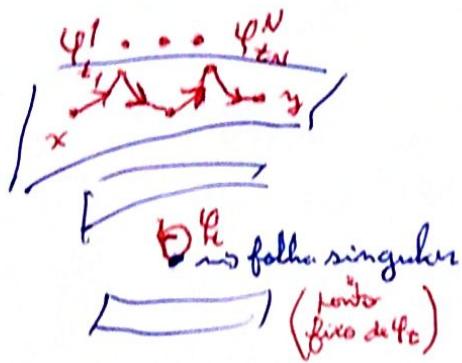 φ¹_{t₁} • • • φᴺ_{t_N}
x y
φ_t
⇝ folha singular
(ponto
fixo de φ_t)